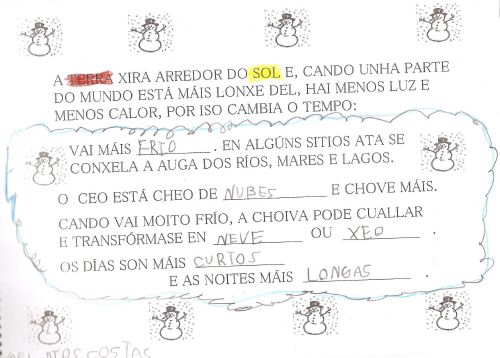 A TERRA XIRA ARREDOR DO SOL E, CANDO UNHA PARTE
DO MUNDO ESTÁ MÁIS LONXE DEL, HAI MENOS LUZ E
MENOS CALOR, POR ISO CAMBIA O TEMPO:
VAI MÁIS FRIO. EN ALGÚNS SITIOS ATA SE
CONXELA A AUGA DOS RÍOS, MARES E LAGOS.
O CEO ESTÁ CHEO DE NUBES E CHOVE MÁIS.
CANDO VAI MOITO FRÍO, A CHOIVA PODE CUALLAR
E TRANSFÓRMASE EN NEVE OU XEO.
OS DÍAS SON MÁIS CURTOS
E AS NOITES MÁIS LONGAS.